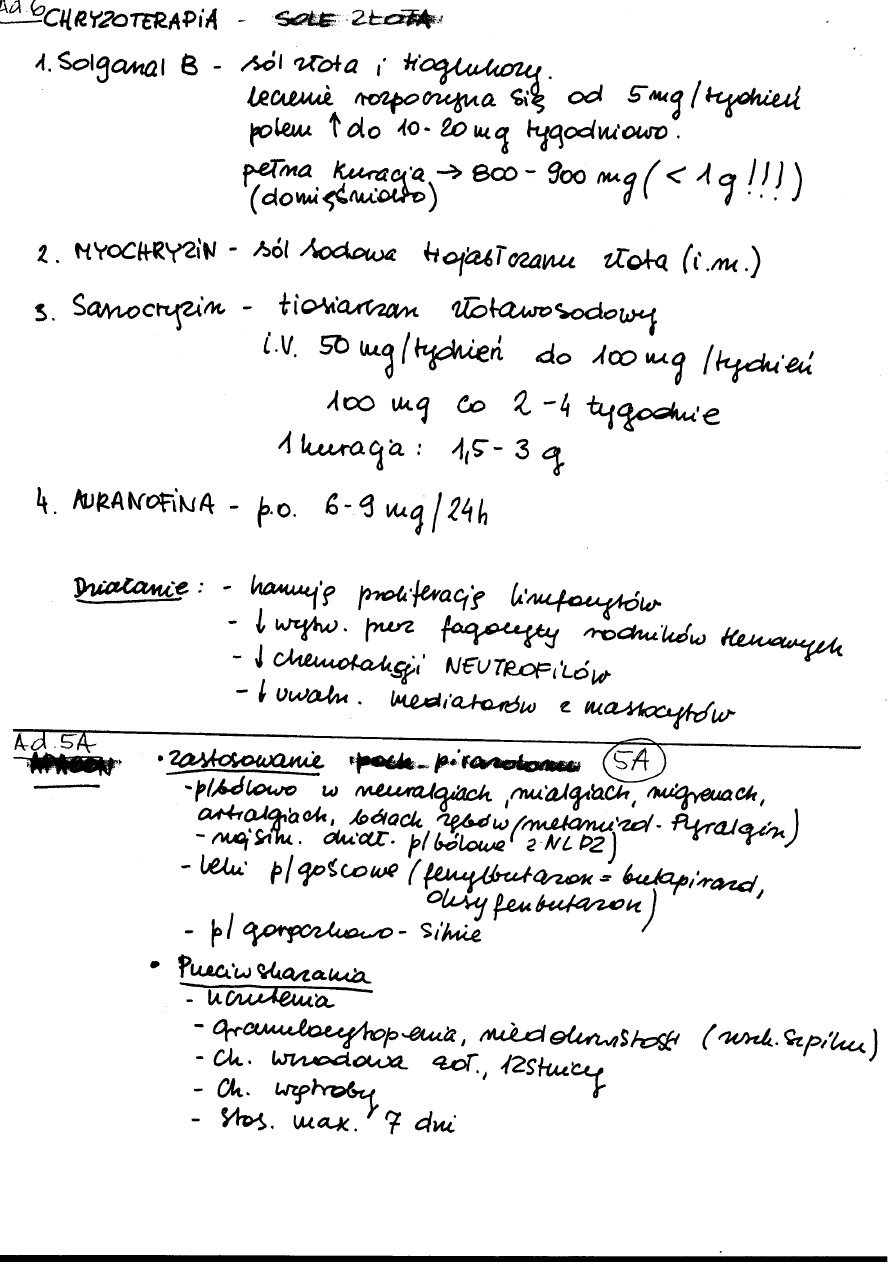 Ad 6 CHRYZOTERAPIA - SOLE ZŁOTA
1. Solganal B - sól złota i tioglukozy.
leczenie rozpoczyna się od 5 mg/tydzień
potem ↑ do 10-20 mg tygodniowo.
pełna kuracja → 800 - 900 mg (< 1g !!!)
(domięśniowo)
2. MYOCHRYZIN - sól sodowa trojabłczanu złota (i.m.)
3. Sanocryzin - tiosiarczan złotawosodowy
i.V. 50 mg/tydzień do 100 mg /tydzień
100 mg co 2 - 4 tygodnie
1 kuracja: 1,5 - 3 g
4. AURANOFINA - p.o. 6-9 mg/24h
Działanie: - hamuję proliferację limfocytów
- ↓ wytw. przez fagocyty rodników tlenowych
- ↓ chemotaksji NEUTROFILÓW
- ↓ uwaln. mediatorów z mastocytów
Ad. 5A
• Zastosowanie poch. pirazolonu 5A
- p/bólowo w neuralgiach, mialgiach, migrenach,
artralgiach, bólach zębów (metamizol - Pyralgin)
- najsiln. dział. p/bólowe z NLPZ)
- leki p/gośćowe (fenylbutazon = butapirazol,
oksyfenbutazon)
- p/gorączkowo - silnie
• Przeciwskazania
- uczulenia
- granulocytopenia, niedokrwistość (uszk. szpiku)
- Ch. wrzodowa żoł., 12stnicy
- Ch. wątroby
- Stos. max. 7 dni